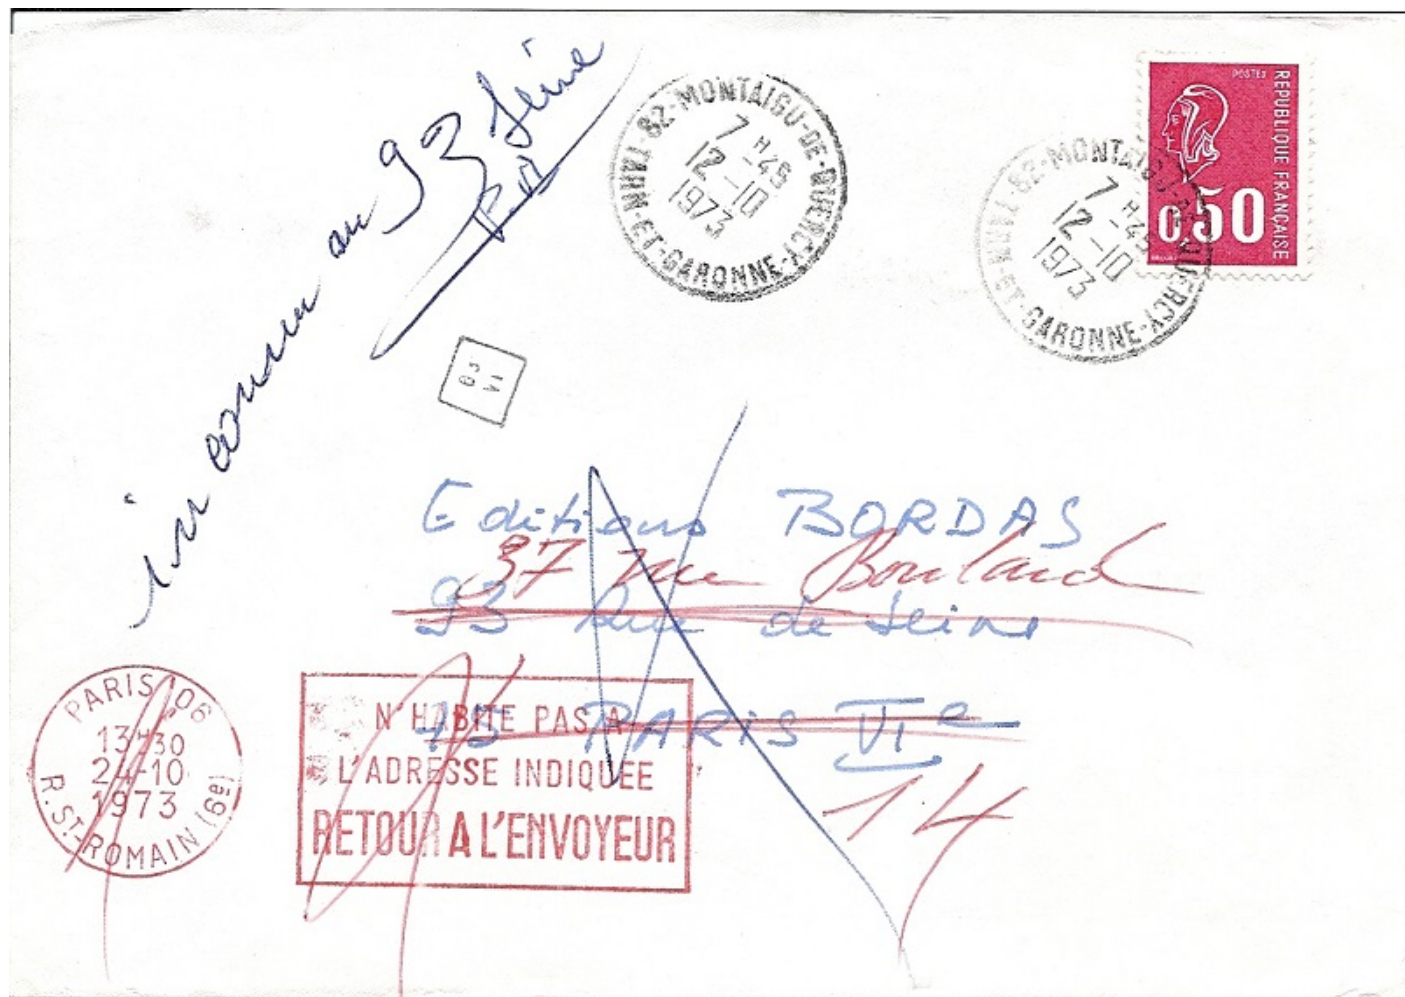 inconnu au 93 Seine
82-MONTAIGU-DE-QUERCY
7H-45
12-10
1973
TARN-ET-GARONNE
82-MONTAIGU-DE-QUERCY
7H-45
12-10
1973
TARN-ET-GARONNE
POSTES
REPUBLIQUE FRANÇAISE
0,50
Editions BORDAS
37 rue Boulard
93 Rue de Seine
75 PARIS VIe
14
PARIS 06
13H30
24-10
1973
R. ST-ROMAIN (6e)
N'HABITE PAS A
L'ADRESSE INDIQUÉE
RETOUR A L'ENVOYEUR